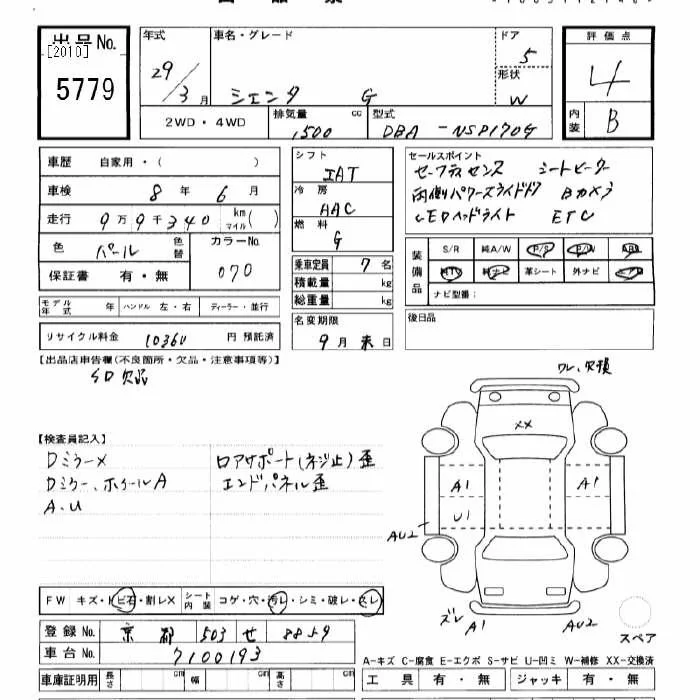 出品No.
[2010]
5779
年式
29/3月
車名・グレード
シエンタ G
ドア
5
形状
W
評価点
4
内装
B
2WD・4WD
排気量
1,500 cc
型式
DBA-NSP170G
車歴 自家用・( )
車検 8年 6月
走行 9万9千340 km マイル( )
色 パール 色替
カラーNo.
070
保証書 有・無
モデル年式 年 ハンドル 左・右 ディーラー・並行
リサイクル料金 10360 円 預託済
シフト
IAT
冷房
AAC
燃料
G
乗車定員 7名
積載量 kg
総重量 kg
名変期限
9月末日
セールスポイント
セーフティセンス シートヒーター
両側パワースライドドア Bカメラ
LEDヘッドライト ETC
装備品
S/R 純A/W P/S P/W ABS
純TV 純ナビ 革シート 外ナビ エアB
ナビ型番:
後日品
【出品店申告欄(不良箇所・欠品・注意事項等)】
SD欠品
ワレ、欠損
【検査員記入】
Dミラー×
Dミラー、ホイールA
A.U
ロアサポート(ネジ止)歪
エンドパネル歪
XX
A1
A1
U1
AU2
ズレ
A1
AU2
スペア
FW キズ・トビ石・割レX シート内装 コゲ・穴・汚レ・シミ・破レ・スレ
登録No. 京都 503 せ 8859
車台No. 7100193
車庫証明用 長さ cm 幅 cm 高さ cm
A-キズ C-腐食 E-エクボ S-サビ U-凹ミ W-補修 XX-交換済
工具 有・無 ジャッキ 有・無